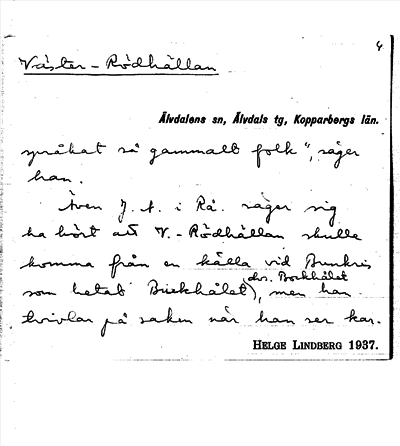 4
Väster-Rödhällan
Älvdalens sn, Älvdals tg, Kopparbergs län.
språkat så gammalt folk", säger
han.
Även J. A. i Rå. säger sig
ha hört att V.-Rödhällan skulle
komma från en källa vid Bunkris
(dvs. Bockhålet
som hetat Buckhålet), men han
tvivlar på saken när han ser kar.
HELGE LINDBERG 1937.